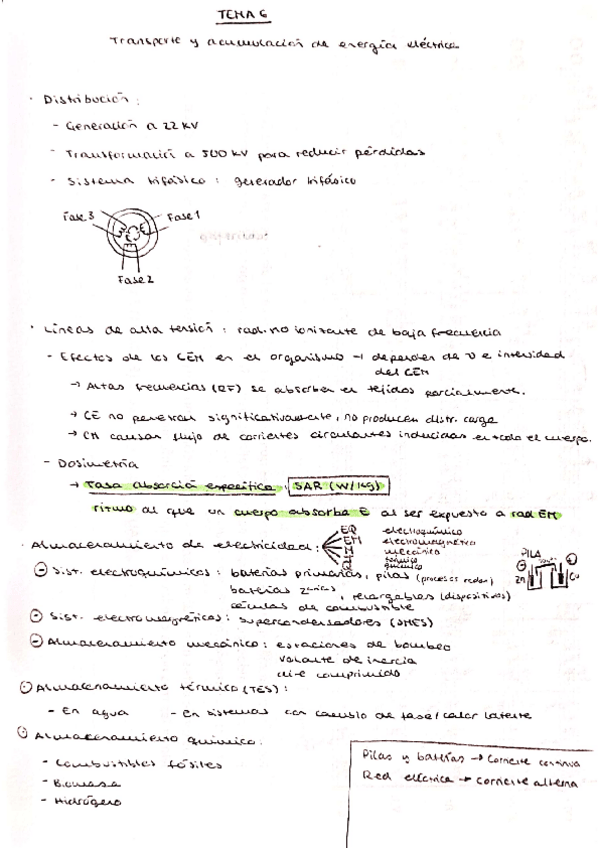 TEMA 6
Transporte y acumulación de energía eléctrica
· Distribución:
- Generación a 22 KV
- Transformación a 500 KV para reducir pérdidas
- Sistema trifásico: generador trifásico
Fase 3 Fase 1
Fase 2
· Líneas de alta tensión: rad. no ionizante de baja frecuencia
- Efectos de los CEM en el organismo → dependen de ν e intensidad
del CEM
→ Altas frecuencias (RF) se absorben en tejidos parcialmente.
→ CE no penetran significativamente, no producen distr. carga
→ CM causan flujo de corrientes circulantes inducidas en todo el cuerpo.
- Dosimetría
→ Tasa absorción específica: SAR (W/kg)
ritmo al que un cuerpo absorbe E al ser expuesto a rad EM
· Almacenamiento de electricidad:
EQ electroquímico
EM electromagnético
M mecánico
térmico
químico
PILA
Zn Cu
Sist. electroquímicos: baterías primarias, pilas (procesos redox)
baterías recargables (dispositivos)
células de combustible
Sist. electromagnéticos: supercondensadores (SMES)
Almacenamiento mecánico: estaciones de bombeo
volante de inercia
aire comprimido
Almacenamiento térmico (TES):
- En agua - En sistemas con cambio de fase/calor latente
Almacenamiento químico:
- Combustibles fósiles
- Biomasa
- Hidrógeno
Pilas y baterías → Corriente continua
Red eléctrica → Corriente alterna